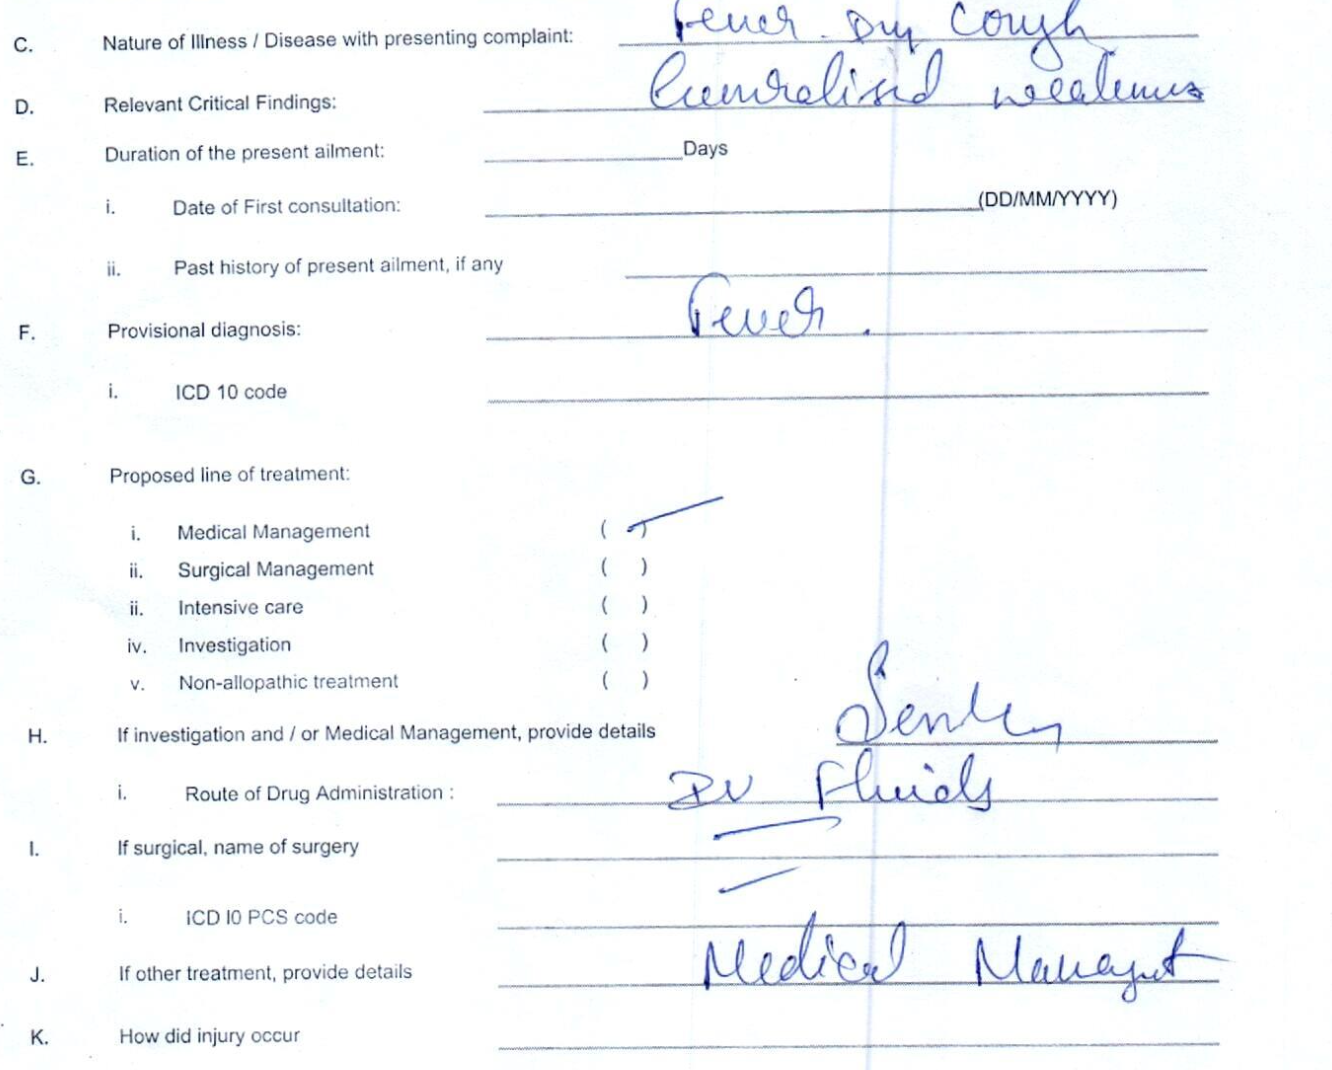 C. Nature of Illness / Disease with presenting complaint: Fever. Dry Cough
D. Relevant Critical Findings: Generalised weakness
E. Duration of the present ailment: Days
i. Date of First consultation: (DD/MM/YYYY)
ii. Past history of present ailment, if any
F. Provisional diagnosis: Fever.
i. ICD 10 code
G. Proposed line of treatment:
i. Medical Management ( )
ii. Surgical Management ( )
ii. Intensive care ( )
iv. Investigation ( )
v. Non-allopathic treatment ( )
H. If investigation and / or Medical Management, provide details
i. Route of Drug Administration : IV Fluids
I. If surgical, name of surgery
i. ICD I0 PCS code
J. If other treatment, provide details Medical Managmt
K. How did injury occur